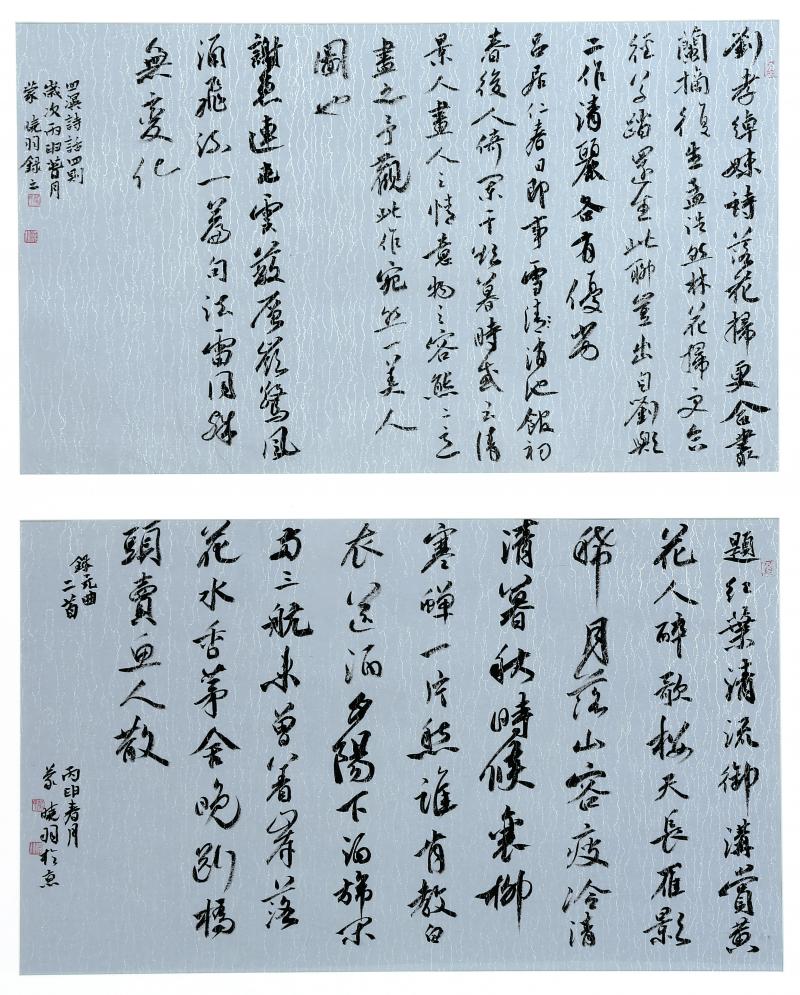 劉孝綽妹詩落花掃更合叢
蘭摘復生孟浩然林花掃更
徑草踏還生此聯豈出自劉歟
二作清麗各有優劣
呂居仁春日即事雪清消池館初
春後人倚闌干欲暮時或云清
景人畫人之情意物之容態二
盡之予觀此作宛然一美人
圖也
謝惠連屯雲蔽層嶺驚風
涌飛流一篇句法雷同殊
無變化
四溟詩話四則
歲次丙申 月
蒙曉羽錄之
題紅葉清流御溝賞黃
花人醉歌樓天長雁影
稀月落山容瘦冷清
清暮秋時候衰柳
寒蟬一片愁誰肯教白
衣送酒夕陽下酒旆閑
兩三航未曾著岸落
花水香茅舍晚斷橋
頭賣魚人散
錄元曲
二首
丙申春月
蒙曉羽於